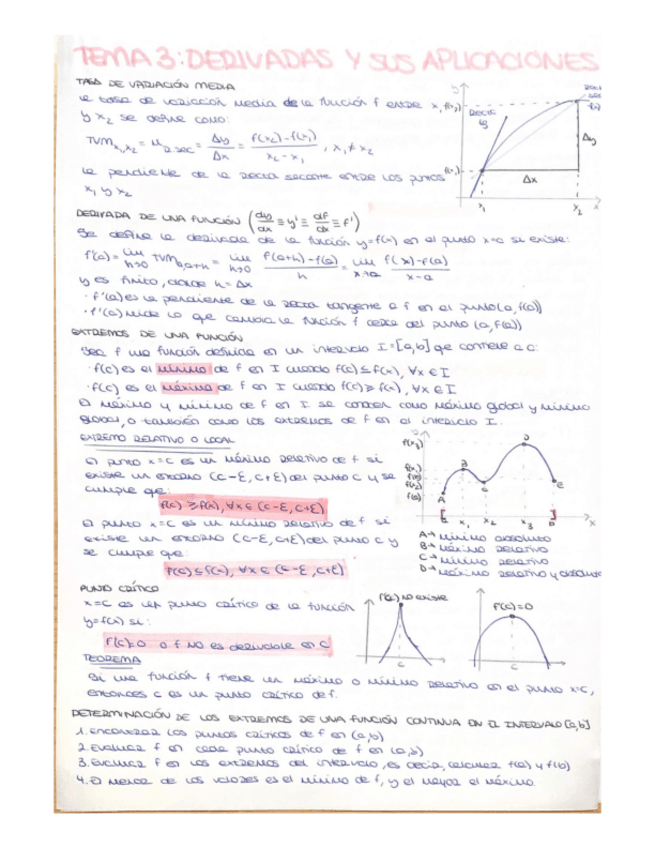 TEMA 3: DERIVADAS Y SUS APLICACIONES
TASA DE VARIACIÓN MEDIA
la tasa de variación media de la función f entre x₁
y x₂ se define como:
TVM x₁,x₂ = M R sec = Δy/Δx = f(x₂)-f(x₁)/x₂-x₁ , x₁≠x₂
la pendiente de la recta secante entre los puntos
x₁ y x₂
y
f(x₂)
f(x₁)
Recta
tg
f(x)
Δy
Δx
x₁
x₂
x
DERIVADA DE UNA FUNCIÓN (dy/dx ≡ y' ≡ df/dx ≡ f')
Se define la derivada de la función y=f(x) en el punto x=a si existe:
f'(a) = lim h→0 TVM a,a+h = lim h→0 f(a+h)-f(a)/h = lim x→a f(x)-f(a)/x-a
y es finito, donde h=Δx
· f'(a) es la pendiente de la recta tangente a f en el punto (a, f(a))
· f'(a) mide lo que cambia la función f cerca del punto (a, f(a))
EXTREMOS DE UNA FUNCIÓN
Sea f una función definida en un intervalo I=[a,b] que contiene a c:
· f(c) es el mínimo de f en I cuando f(c)≤f(x), ∀x∈I
· f(c) es el máximo de f en I cuando f(c)≥f(x), ∀x∈I
El máximo y mínimo de f en I se conocen como máximo global y mínimo
global, o también como los extremos de f en el intervalo I.
EXTREMO RELATIVO O LOCAL
El punto x=c es un máximo relativo de f si
existe un entorno (c-ε, c+ε) del punto c y se
cumple que:
f(c)≥f(x), ∀x∈(c-ε, c+ε)
El punto x=c es un mínimo relativo de f si
existe un entorno (c-ε, c+ε) del punto c y
se cumple que:
f(c)≤f(x), ∀x∈(c-ε, c+ε)
f(x₃)
f(x₁)
f(x₂)
f(a)
A
B
C
D
E
x₁
x₂
x₃
x
A→ mínimo absoluto
B→ máximo relativo
C→ mínimo relativo
D→ máximo relativo y absoluto
PUNTO CRÍTICO
x=c es un punto crítico de la función
y=f(x) si:
f'(c)=0 o f no es derivable en c
f'(c) no existe
c
f'(c)=0
c
TEOREMA
Si una función f tiene un máximo o mínimo relativo en el punto x=c,
entonces c es un punto crítico de f.
DETERMINACIÓN DE LOS EXTREMOS DE UNA FUNCIÓN CONTINUA EN EL INTERVALO [a,b]
1. Encontrar los puntos críticos de f en (a,b)
2. Evaluar f en cada punto crítico de f en (a,b)
3. Evaluar f en los extremos del intervalo, es decir, calcular f(a) y f(b)
4. El menor de los valores es el mínimo de f, y el mayor el máximo.